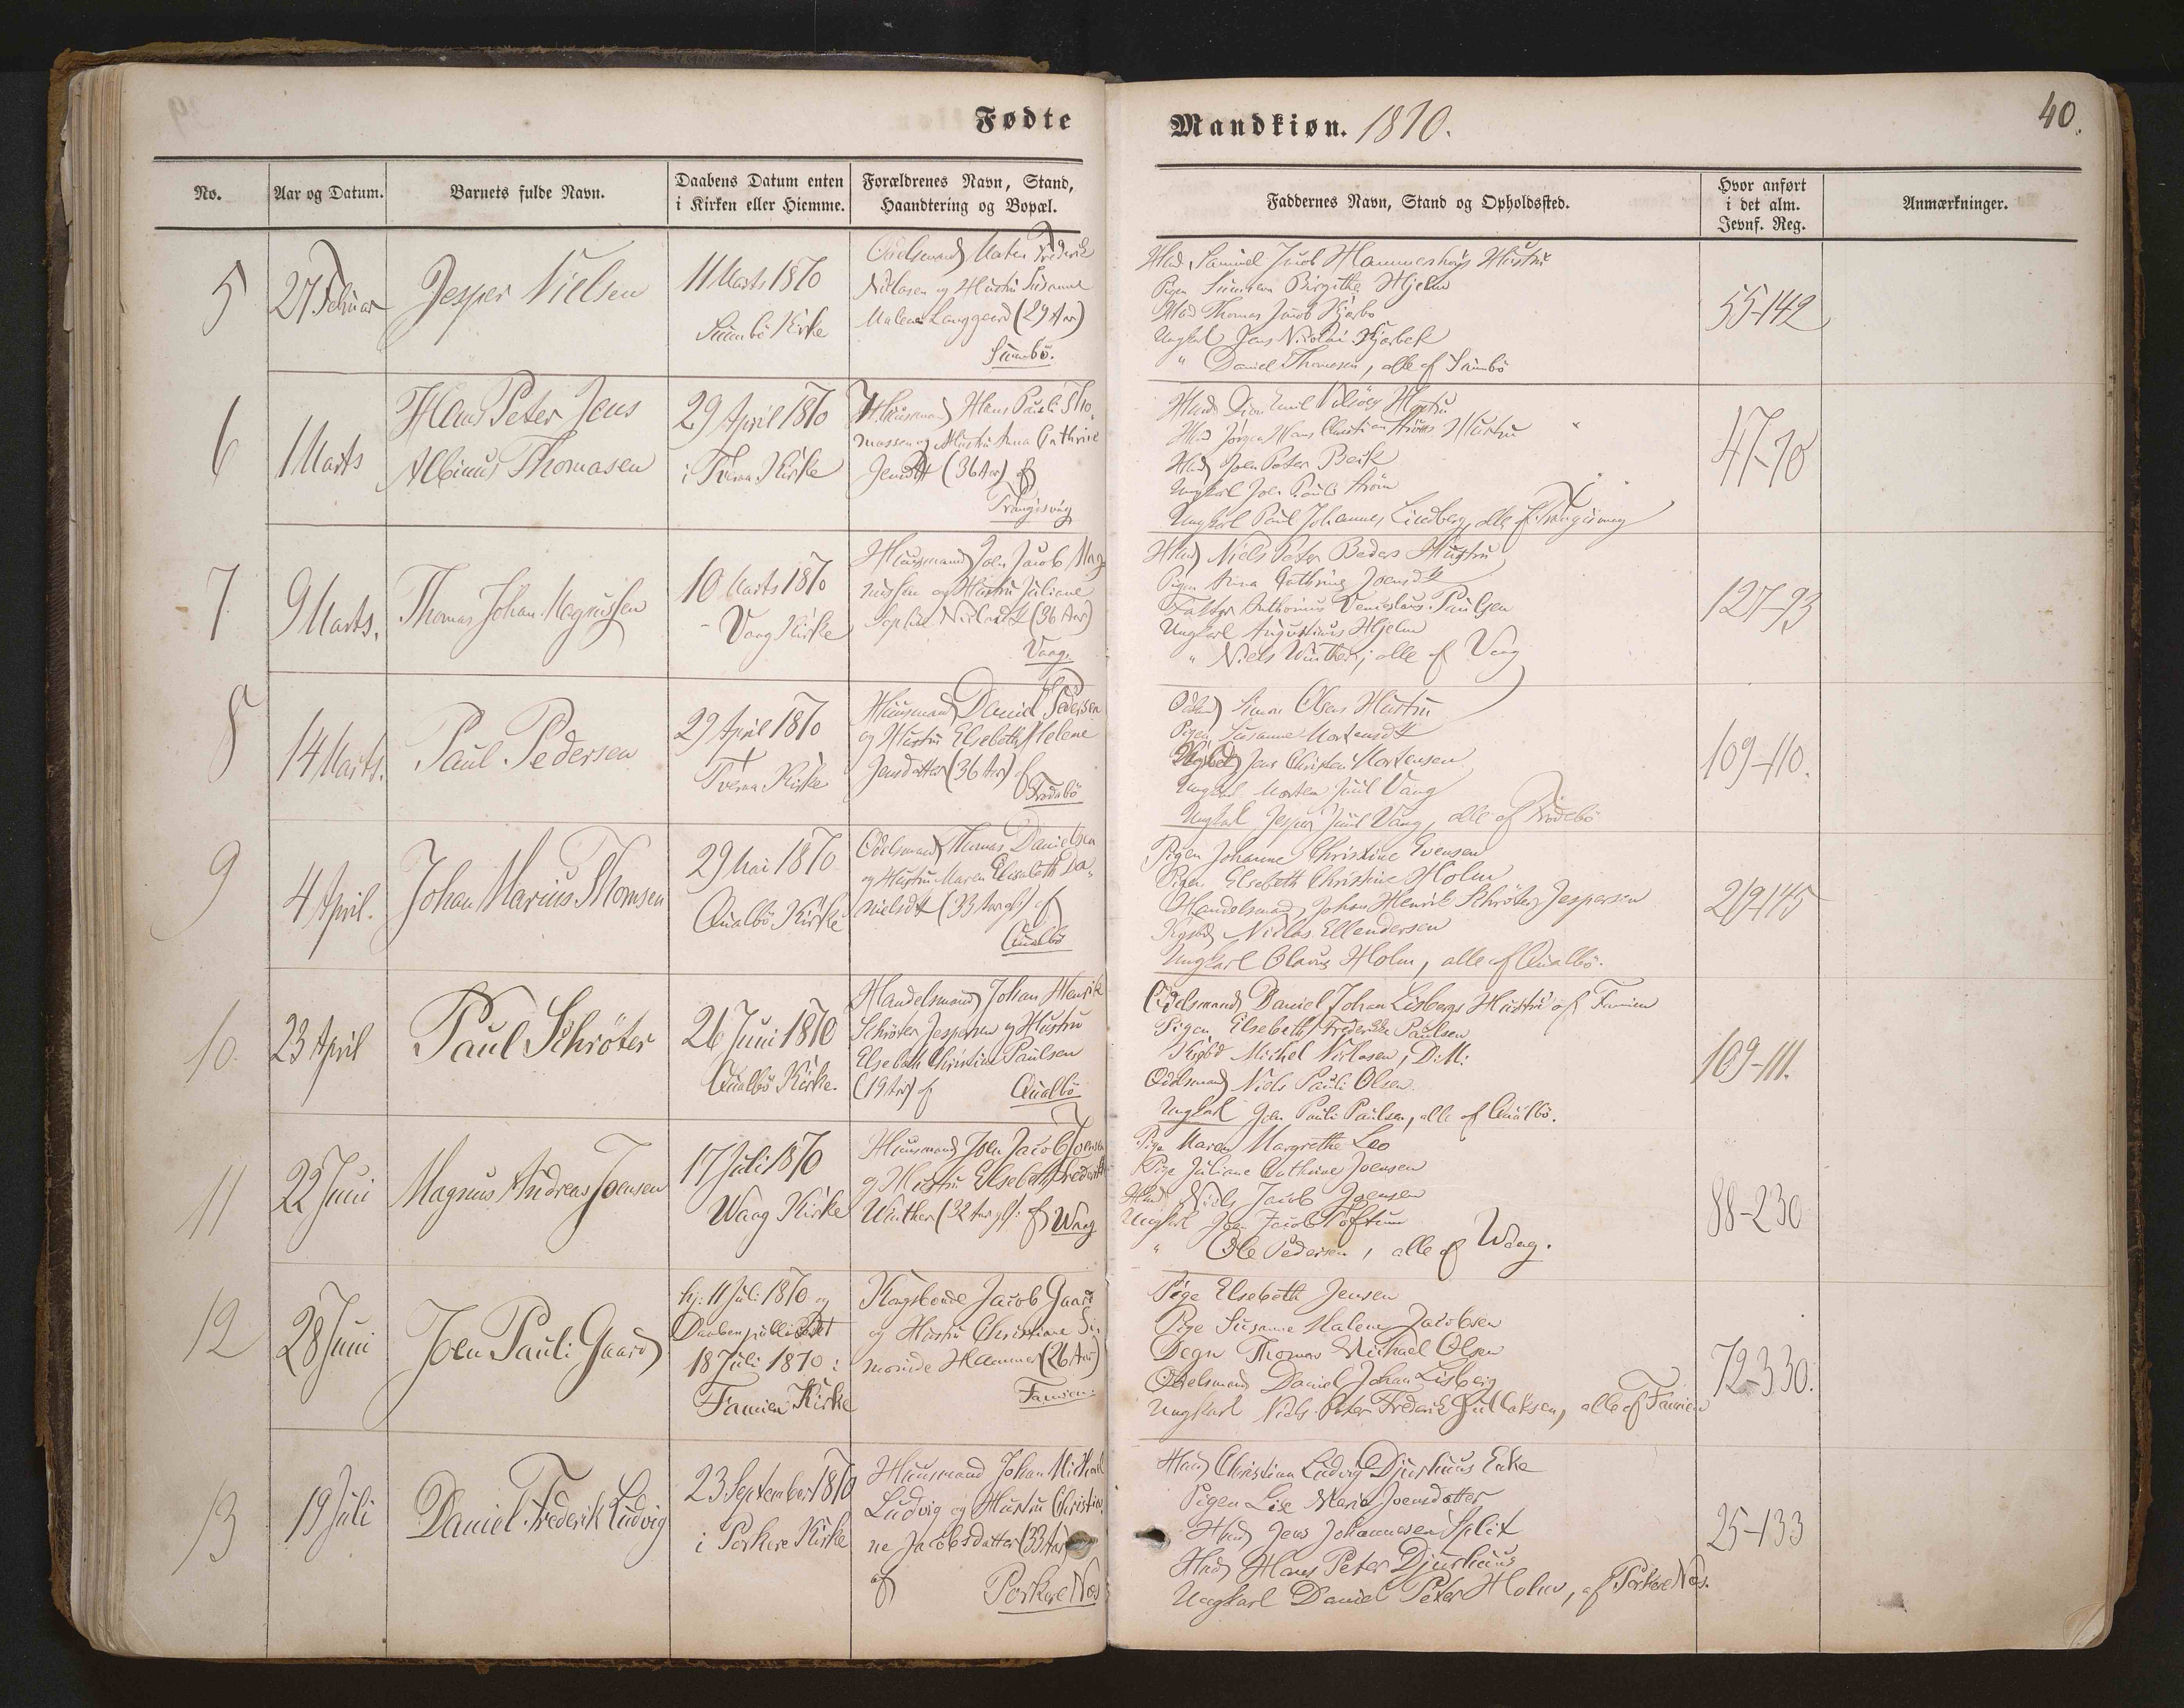 Fødte
Mandkiøn. 1870.
40.
No.
Aar og Datum.
Barnets fulde Navn.
Daabens Datum enten
i Kirken eller Hiemme.
Forældrenes Navn, Stand,
Haandtering og Bopæl.
Faddernes Navn, Stand og Opholdssted.
Hvor anført
i det alm.
Jevnf. Reg.
Anmærkninger.
5
27 Februar
Jesper Nielsen
11 Marts 1870
Sumbö Kirke
Odelsmand Frederik
og Hustru Susanne
Malene Langgaard (29 Aar)
Sumbö.
Hmd. Samuel Jacob Hammershøjs Hustru
Pigen Birgithe Hjelm
Hmd Thomas Jacob
Ungkarl Jens Nicolai Kjærbek
" Daniel Thomesen, alle af Sumbö
55-142
6
1 Marts
Hans Peter Jens
Albinus Thomasen
29 April 1870
i Kirke
Huusmand Hans Pauli Tho-
massen og Hustru Anna Cathrine
(36 Aar) af
Trangisvaag
Emil Hustru
Hmd Jörgen Hans Christian Hustru
Hmd Joen Peter
Ungkarl Joen Pauli
Ungkarl Paul Johannes Lindberg, alle af Trangisvaag
47-70
7
9 Marts.
Thomas Johan Magnussen
10 Marts 1870
Vaag Kirke
Huusmand Joen Jacob Mag-
nussen og Hustru Juliane
Sophie (36 Aar)
Vaag.
Hmd Niels Peter Beders Hustru
Pigen Anna Cathrine Joensdtr
Anthonius Paulsen
Ungkarl Augustinus Hjelm
" Niels Winther, alle af Vaag
127-93
8
14 Marts.
Paul Pedersen
29 April 1870
Kirke
Huusmand Daniel Pedersen
og Hustru Elsebeth Helene
Jensdatter (36 Aar) af
Frodebö
Simon Olsens Hustru
Pigen Susanne Mortensdtr
Jens Christen Mortensen
Ungkarl Morten Juul Vang
Ungkarl Jesper Juul Vang, alle af Frodebö
109-110.
9
4 April.
Johan Marius Thomsen
29 Mai 1870
Qualbö Kirke
Odelsmand Thomas Danielsen
og Hustru Maren Elisabeth Da-
nielsdtr (33 Aar gl) af
Qualbö
Pigen Johanne Christine Evensen
Pigen Elsebeth Christine Holm
Handelsmand Johan Henrik Schröter Jespersen
Niclas Ellendersen
Ungkarl Olavus Holm, alle af Qualbö.
10.
23 April
Paul Schröter
26 Juni 1870
Qualbö Kirke.
Handelsmand Johan Henrik
Schröter Jespersen og Hustru
Elsebeth Christine Paulsen
(19 Aar) af Qualbö
Odelsmand Daniel Johan Lisbergs Hustru af Famien
Pigen Elsebeth Frederikke Paulsen
Michel Niclasen, D.M:
Odelsmand Niels Pauli Olsen
Ungkarl Joen Pauli Paulsen, alle af Qualbö.
109-111.
11
22 Juni
Magnus Andreas Joensen
17 Juli 1870
Waag Kirke
Huusmand Joen Jacob Joensen
og Hustru Elsebeth
Winther (32 Aar gl: af Waag
Pige Maren Margrethe Leo
Pige Juliane Cathrine Joensen
Hmd Niels Jacob Joensen
Ungkarl Joen Jacob Toftum
" Ole Pedersen, alle af Waag.
88-230
12
28 Juni
Joen Pauli Gaard
hj: 11 Juli 1870 og
Daaben publiceret
18 Juli 1870 i
Famien Kirke
Kongsbonde Jacob Gaard
og Hustru Christiane Si-
monide Hammer (26 Aar)
Famien.
Pige Elsebeth Jensen
Pige Susanne Malene Jacobsen
Degn Thomas Michael Olsen
Odelsmand Daniel Johan Lisberg
Ungkarl Niels Peter Frederik Gullaksen, alle af Famien
72-330.
13
19 Juli
Daniel Frederik Ludvig
23 September 1870
i Porkere Kirke
Huusmand Johan Michael
Ludvig og Hustru Christia-
ne Jacobsdatter (33 Aar)
af Porkere Næs
Hmd Christian Ludvig Djurhuus Enke
Pigen Lise Maria Joensdatter
Hmd Jens Johannesen Split
Hmd Hans Peter Djurhuus
Ungkarl Daniel Peter Holm, af Porkere Næs.
25-133